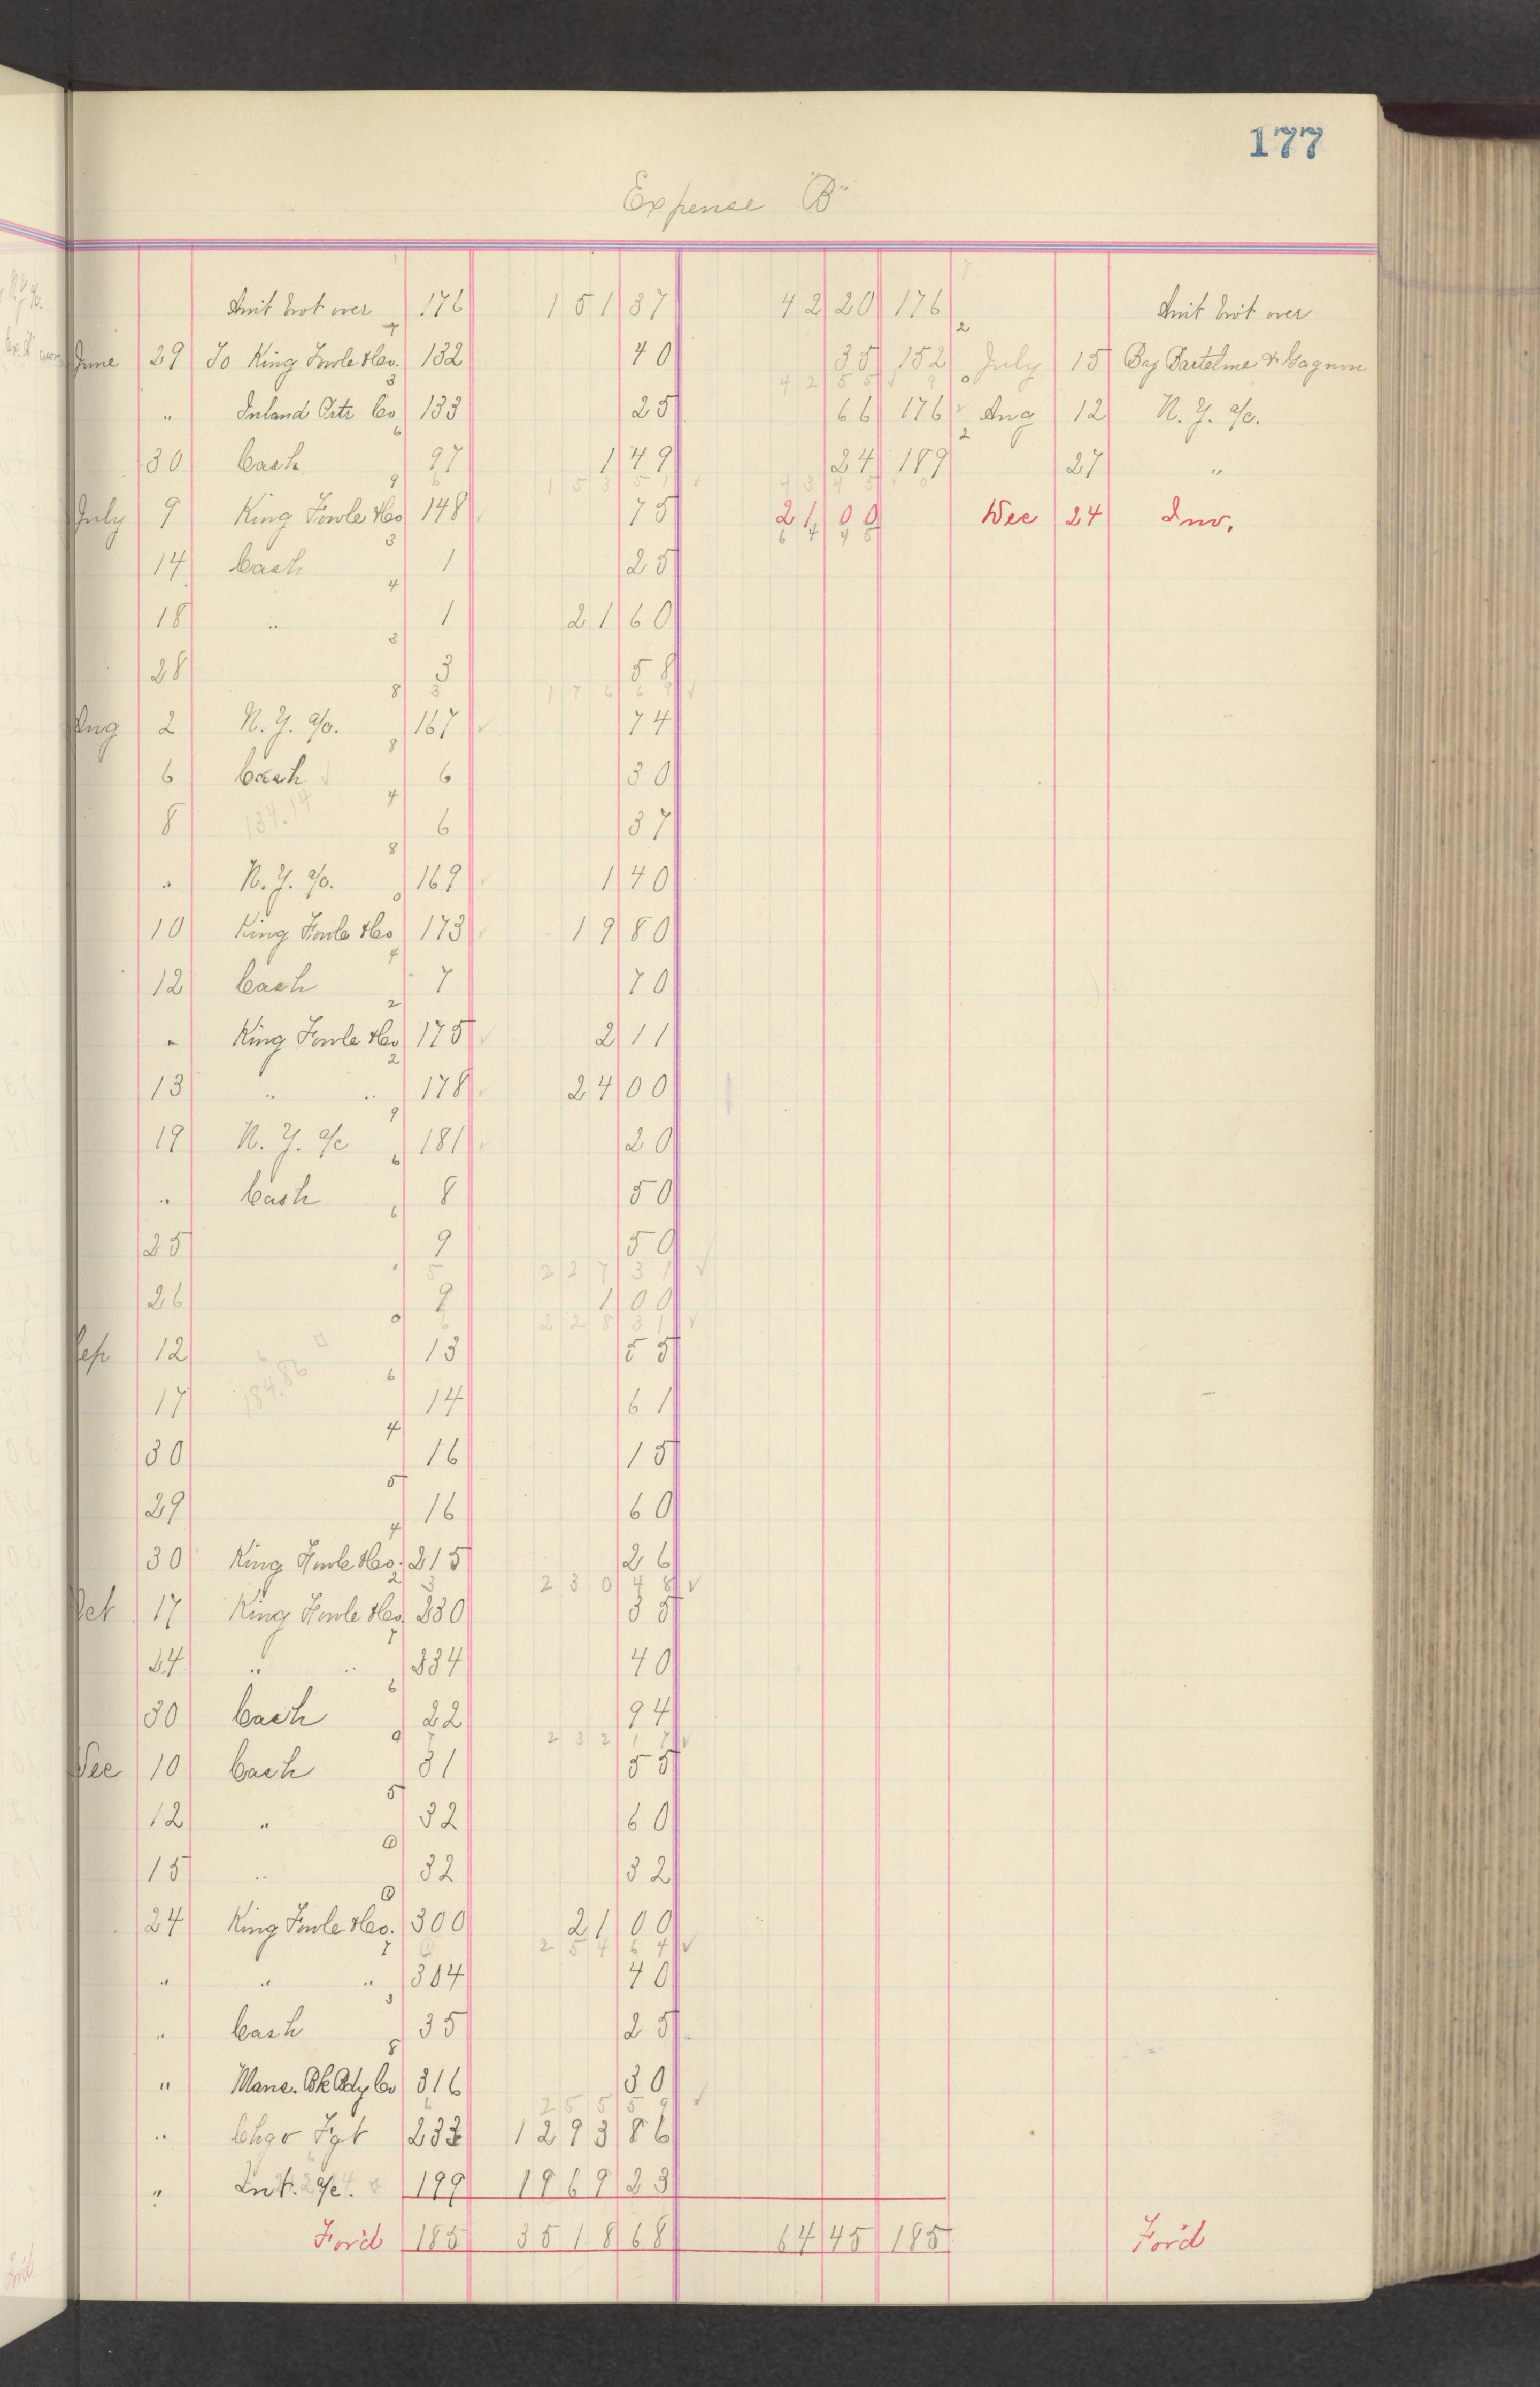 177
Expense "B"
Amt brot over 176 151 37 42 20 176 Amt brot over
June 29 To King Fowle & Co. 132 40 35 152 July 15 By Bartelme & Gagnon
4255
" Inland Cstr Co 133 25 66 176 Aug 12 N. Y. a/c.
30 Cash 97 1 49 24 189 27 "
15351 4345
July 9 King Fowle & Co 148 75 21 00 Dec 24 Inv.
6445
14 Cash 1 25
18 " 1 21 60
28 3 58
17669
Aug 2 N. Y. a/c. 167 74
6 Cash 6 30
8 134.14 6 37
" N. Y. a/c. 169 1 40
10 King Fowle & Co 173 19 80
12 Cash 7 70
" King Fowle & Co 175 2 11
13 " " 178 24 00
19 N. Y. a/c 181 20
" Cash 8 50
25 9 50
22731
26 9 1 00
22831
Sep 12 13 55
17 184.86 14 61
30 16 15
29 16 60
30 King Fowle & Co. 215 26
23048
Oct 17 King Fowle & Co. 230 35
24 " " 234 40
30 Cash 22 94
23217
Dec 10 Cash 31 55
12 " 32 60
15 " 32 32
24 King Fowle & Co. 300 21 00
25464
" " " 304 40
" Cash 35 25
" Mans. Bk Adg Co 316 30
25559
" Chgo Fgt 233 1293 86
" Int. a/c. 199 1969 23
For'd 185 3518 68 64 45 185 For'd